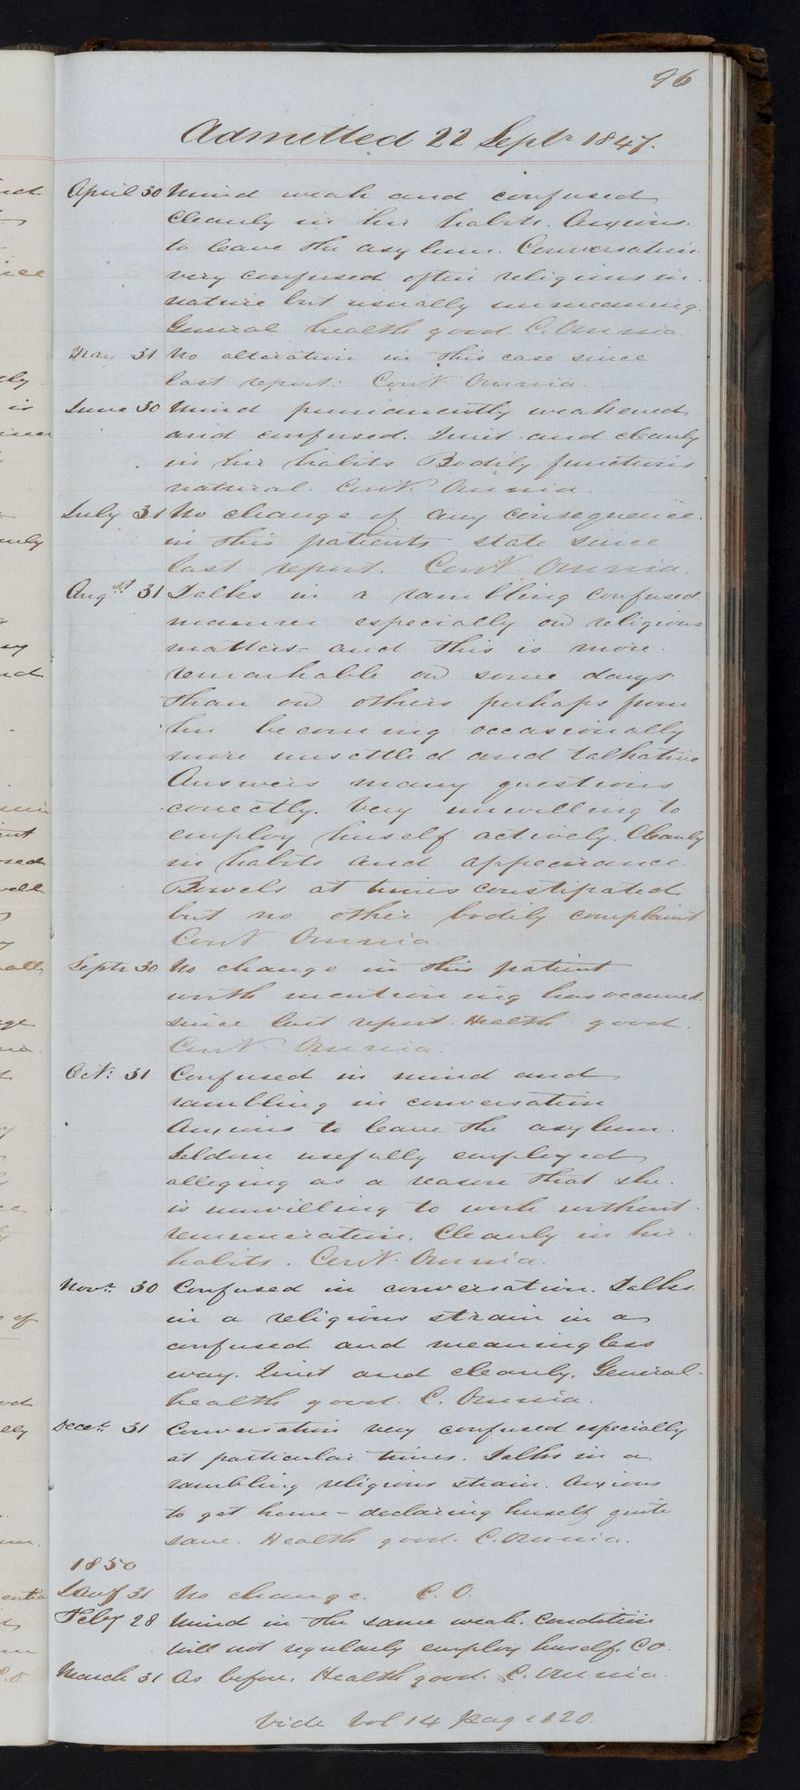 96
Admitted 22 Septr 1847.
April 30 Mind weak and confused
Cleanly in her habits. Anxious
to leave the asylum. Conversation
very confused often religious in
nature but usually unmeaning.
General health good. C. Omnia.
May 31 No alteration in this case since
last report. Cont. Omnia.
June 30 Mind permanently weakened
and confused. Quiet and cleanly
in her habits Bodily functions
natural. Cont. Omnia.
July 31 No change of any consequence
in this patients state since
last report. Cont. Omnia.
Augst 31 Talks in a rambling confused
manner especially on religious
matters and this is more
remarkable on some days
than on others perhaps from
her becoming occasionally
more unsettled and talkative
Answers many questions
correctly. Very unwilling to
employ herself actively. Cleanly
in habits and appearance.
Bowels at times constipated
but no other bodily complaint
Cont Omnia.
Septr 30 No change in this patient
worth mentioning has occurred
since last report. Health good.
Cont. Omnia.
Oct. 31 Confused in mind and
rambling in conversation
Anxious to leave the asylum.
Seldom usefully employed
alleging as a reason that she
is unwilling to work without
remuneration. Cleanly in her
habits. Cont. Omnia.
Novr. 30 Confused in conversation. Talks
in a religious strain in a
confused and meaningless
way. Quiet and cleanly. General
health good. C. Omnia.
Decr. 31 Conversation very confused especially
at particular times. Talks in a
rambling religious strain. Anxious
to get home – declaring herself quite
sane. Health good. C. Omnia.
1850
Jany 31 No change. C. O.
Feby 28 Mind in the same weak condition
Will not regularly employ herself. CO.
March 31 As before. Health good. C. Omnia.
Vide Vol 14 page 120.